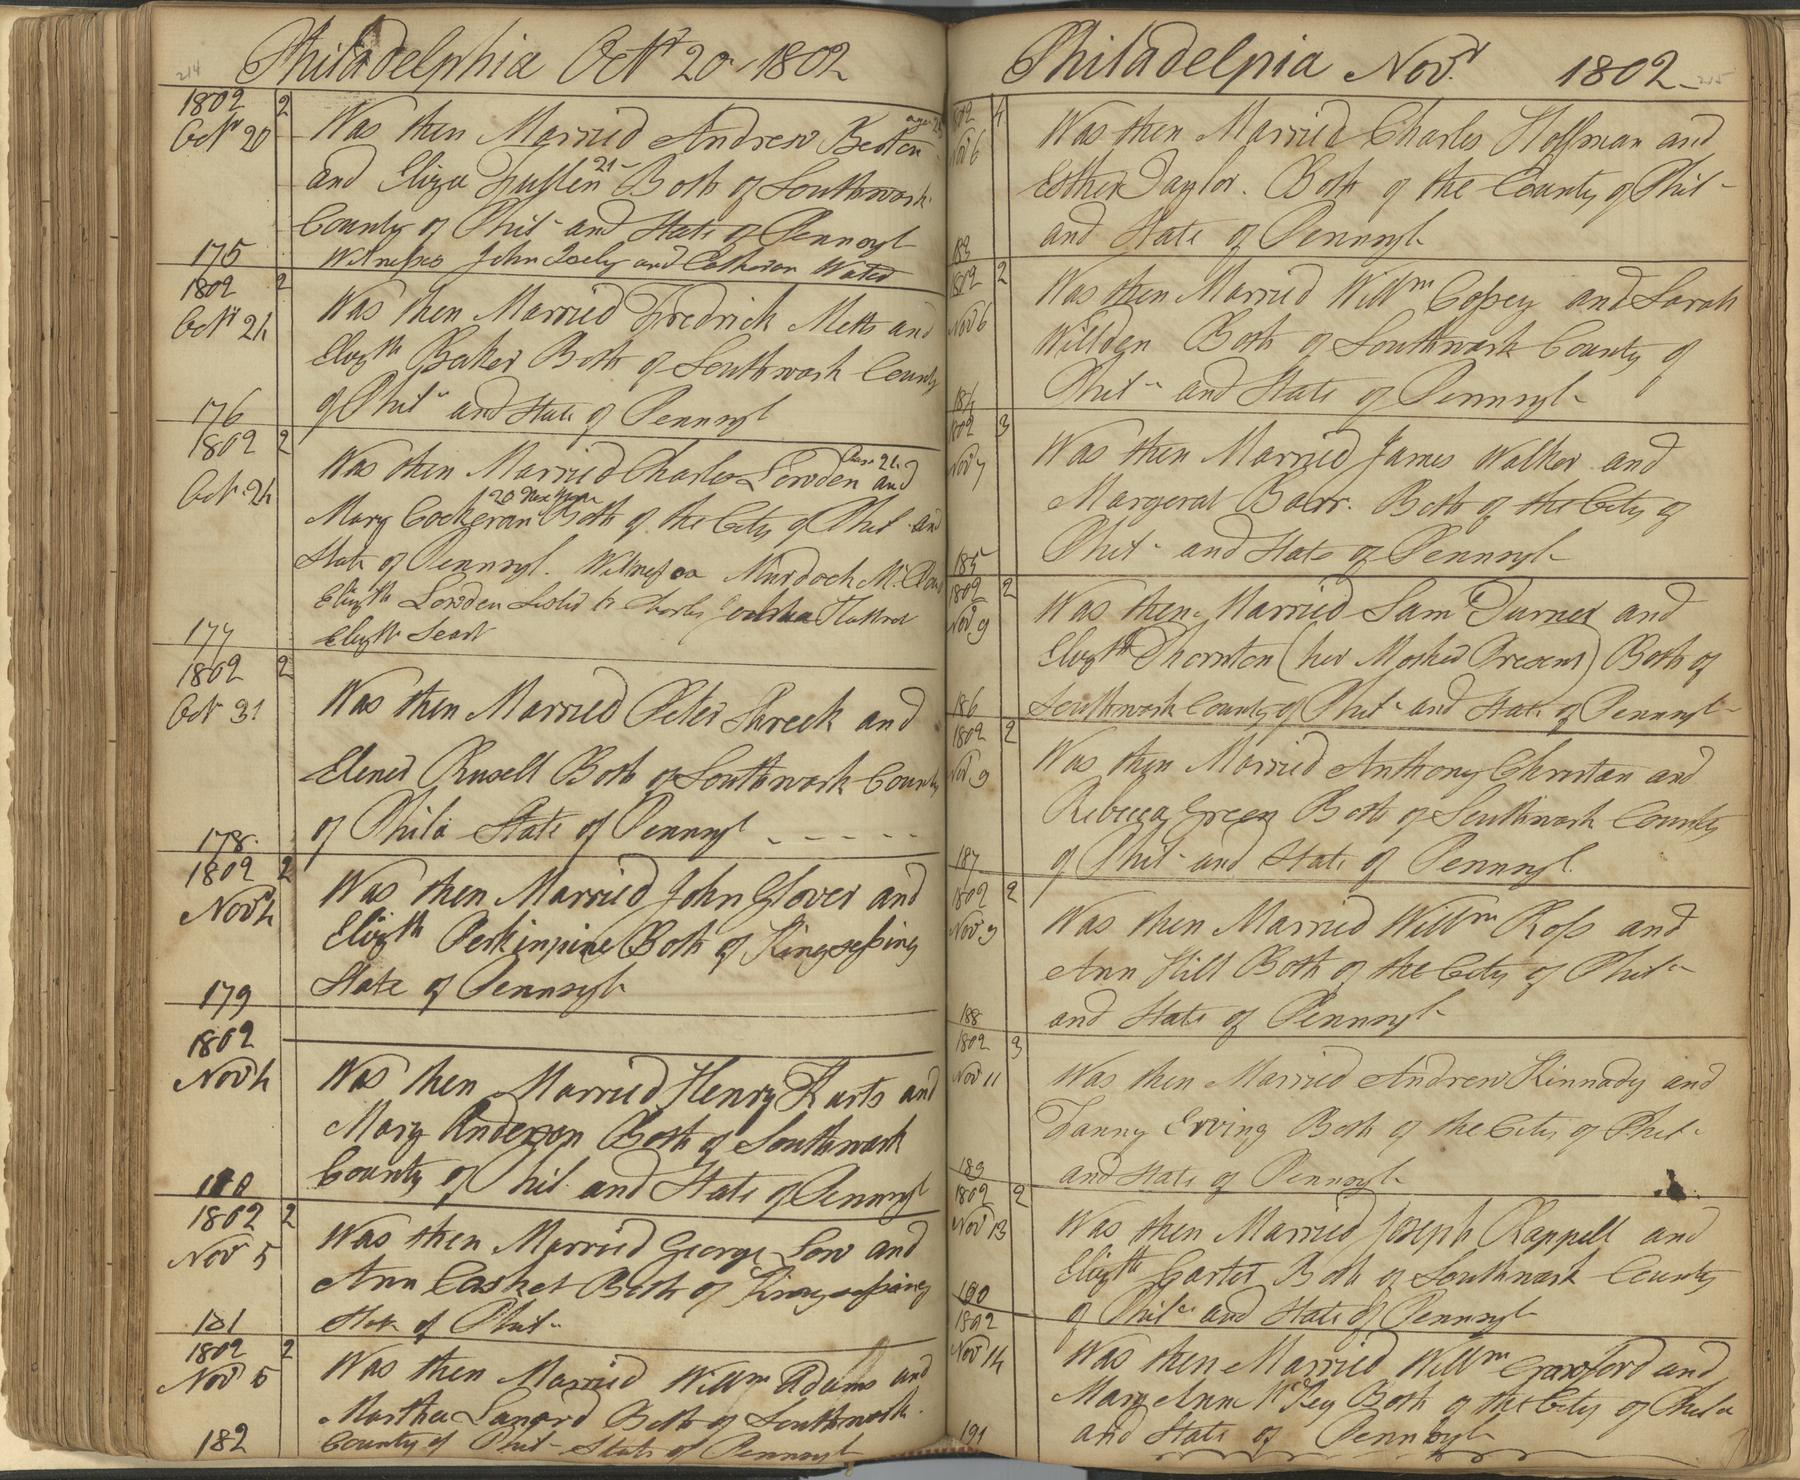 214
Philadelphia Octr 20. 1802
1802 2
Octr 20
Was then Married Andrew Beston
and Eliza 21 Both of Southwark
County of Phila and State of Pennsyl
175
Witnesses John and Catheran
1802 2
Octr 24
Was then Married Fredrick Metts and
Elizth Baker Both of Southwark County
of Phila and State of Pennsyl
176
1802 2
Octr 24
Was then Married Charles Lowden and
Mary Cockeran Both of the City of Phil and
State of Pennsyl. Witness Murdock Mc
Elizth Lowden Sister to Charles
Elizth
177
1802 2
Octr 31
Was then Married Peter Shreek and
Elener Rusell Both of Southwark County
of Phila State of Pennsyl - - - - -
178
1802 2
Novr 4
Was then Married John Glover and
Elizth Perkinpine Both of Kingsessing
State of Pennsyl
179
1802
Novr 4
Was then Married Henry Karts and
Mary Anderson Both of Southwark
County of Phil and State of Pennsyl
180
1802 2
Novr 5
Was then Married George Low and
Ann Casket Both of Kingsessing
State of Phila
181
1802 2
Novr 5
Was then Married Willm Adams and
Martha Both of Southwark
182
County of Phil State of Pennsyl
Philadelpia Novr 1802
215
1802 4
Novr 6
Was then Married Charles Hoffman and
Esther Taylor. Both of the County of Phil
and State of Pennsyl
183
1802 2
Novr 6
Was then Married Willm Copey and Sarah
Willden Both of Southwark County of
Phila and State of Pennsyl
184
1802 3
Novr 7
Was then Married James Walker and
Margeret Barr. Both of the City of
Phila and State of Pennsyl
185
1802 2
Novr 9
Was then Married Saml Turner and
Elizth Thornton (her Mother Present) Both of
186
Southwark County of Phila and State of Pennsyl
1802 2
Novr 9
Was then Married Anthony Christan and
Rebecca Green Both of Southwark County
187
of Phila and State of Pennsyl.
1802 2
Novr 9
Was then Married Willm Ross and
Ann Hill Both of the City of Phila
and State of Pennsyl
188
1802 3
Novr 11
Was then Married Andrew Kinnady and
Fanny Erving Both of the City of Phila
and State of Pennsyl
189
1802 2
Novr 13
Was then Married Joseph Rappell and
Elizth Carter Both of Southwark County
190
of Phila and State of Pennsyl
1802
Novr 14
Was then Married Willm Crawford and
Mary Ann McKey Both of the City of Phila
191
and State of Pennsyl